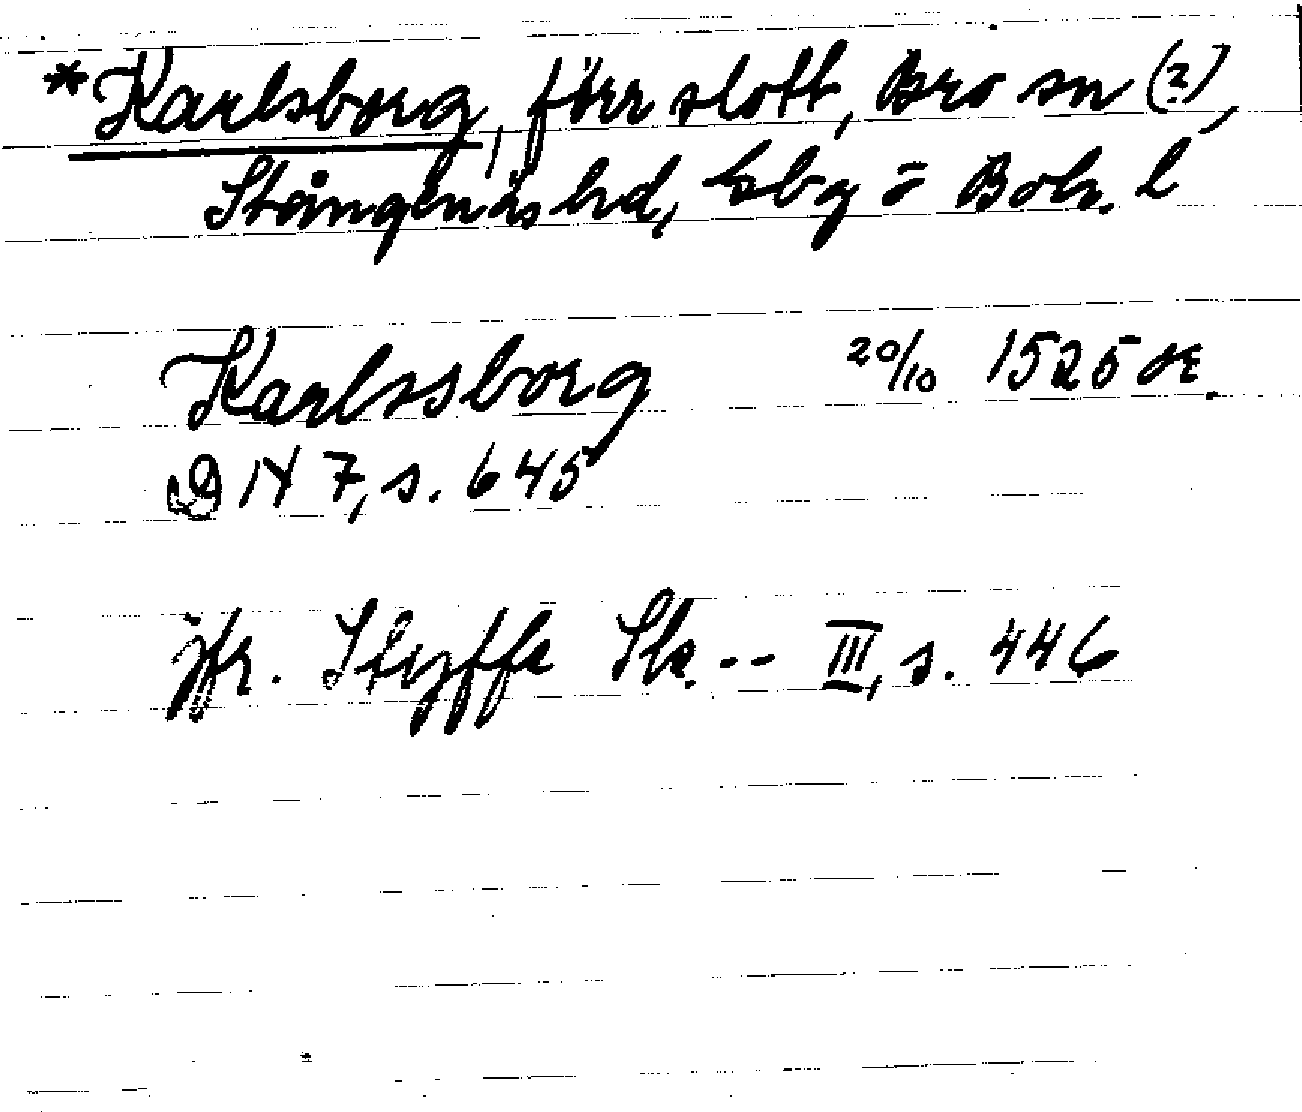 *Karlsborg, förr slott, Bro sn (?),
Stångenäs hd, Gbg o Boh. l
Karlssborg 20/10 1525 or.
DN 7, s. 645
jfr. Styffe Sk. -- III, s. 446